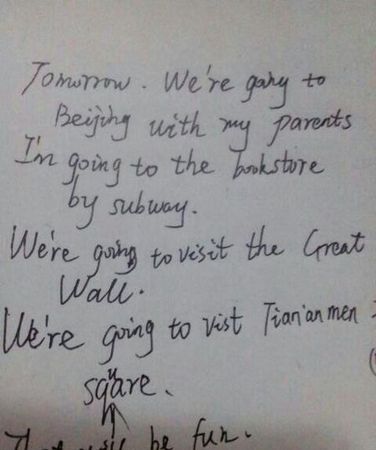 Tomorrow. We're gong to
Beijing with my parents
I'm going to the bookstore
by subway.
We're going to visit the Great
Wall.
We're going to vist Tian'anmen
square.
be fun.